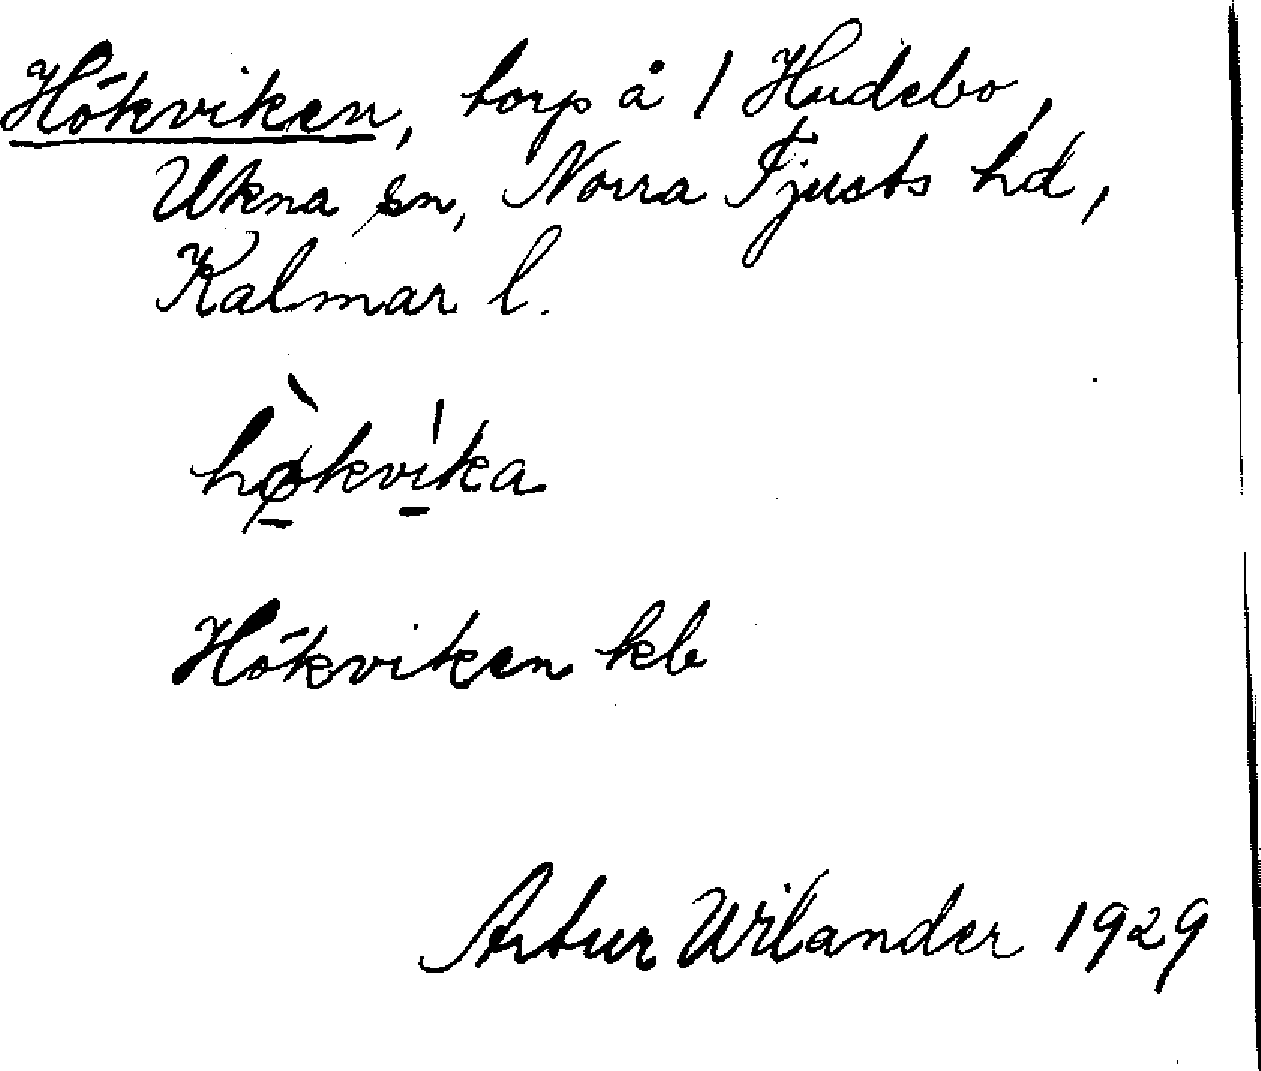 Hökviken, torp å 1 Hudebo,
Ukna sn, Norra Tjusts hd,
Kalmar l.
hø̀kvíka
Hökviken kb
Artur Wilander 1929